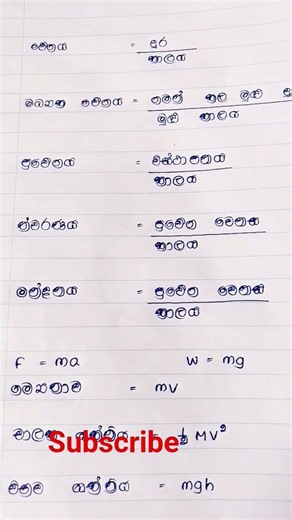 වේගය = දුර
කාලය
මධ්‍යක වේගය = ගමන් කළ මුළු දු
මුළු කාලය
ප්‍රවේගය = විස්ථාපනය
කාලය
ත්වරණය = ප්‍රවේග වෙනස
කාලය
මන්දනය = ප්‍රවේග වෙනස
කාලය
F = ma W = mg
ගම්‍යතාව = mv
චාලක ශක්තිය = ½ mv²
Subscribe
විභව ශක්තිය = mgh